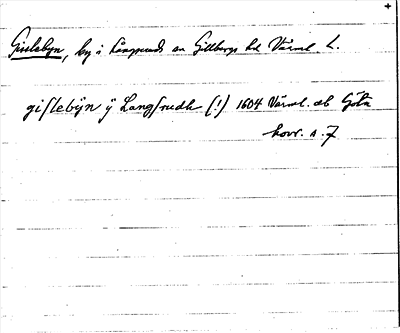 Gislebyn, by i Långseruds sn Gillbergs hd Värml. l.
gislebÿn ÿ Langsrudh (!) 1604 Värml. ab Göta
hovr. A. 7